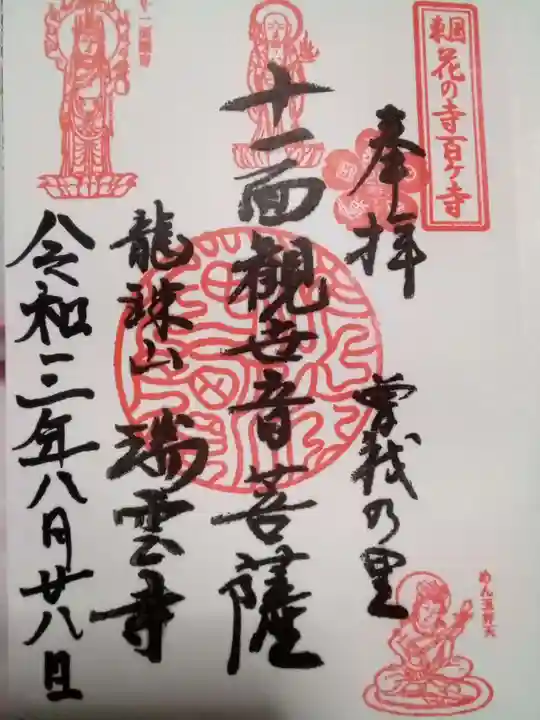 東国花の寺百ケ寺
奉拝
曽我の里
十一面観世音菩薩
龍珠山 瑞雲寺
令和三年八月廿八日